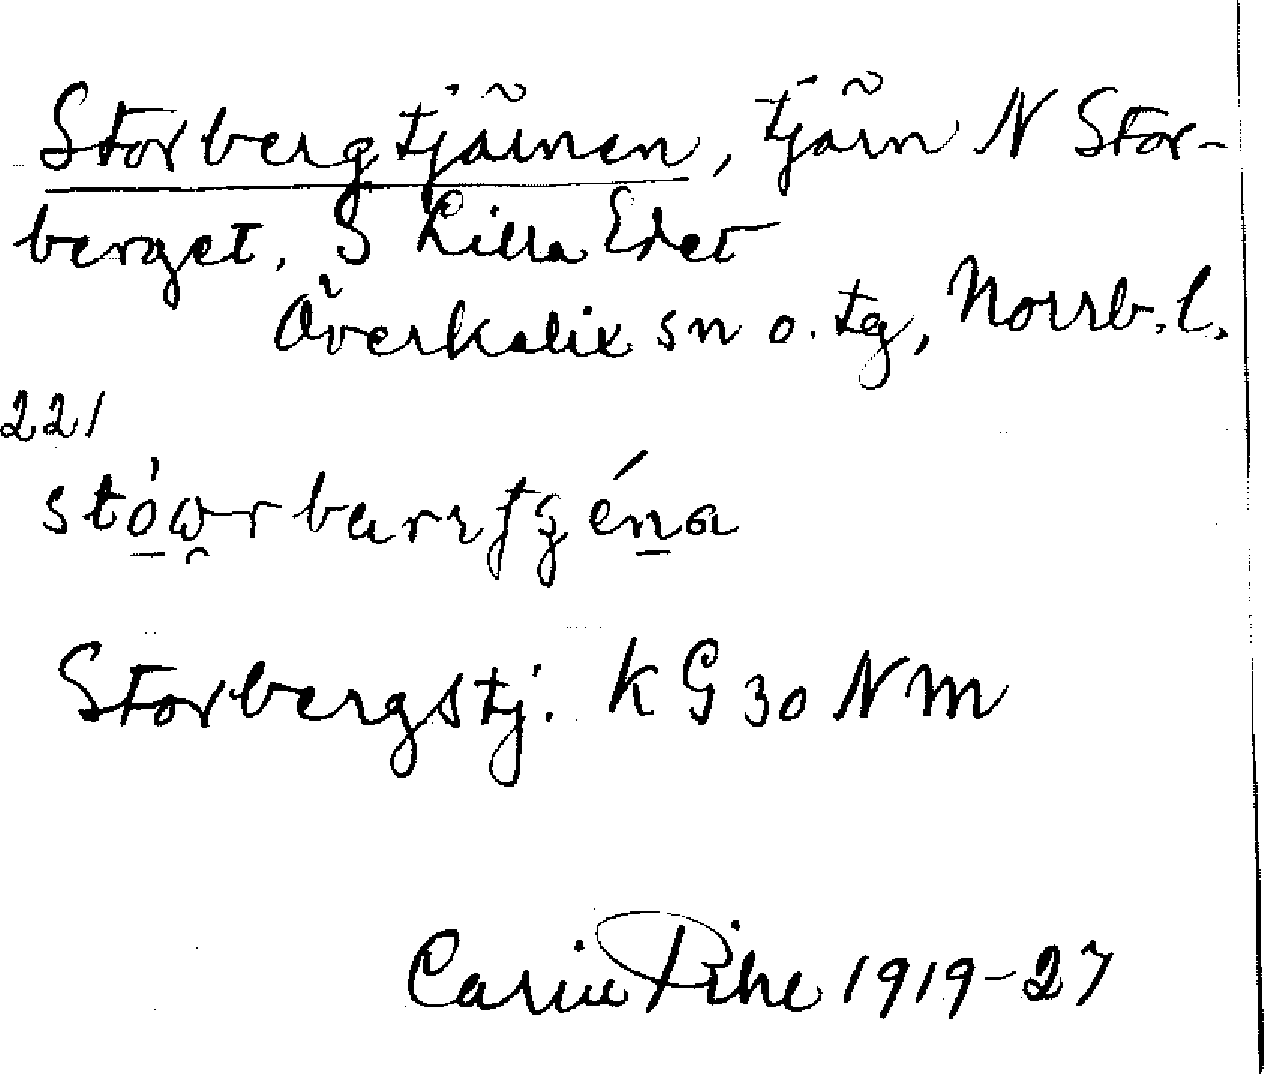 Storbergtjärnen, tjärn N Stor-
berget, S Lilla Edet
Överkalix sn o. tg, Norrb. l.
221
Storbergstj. KG 30 NM
Carin Pihl 1919-27